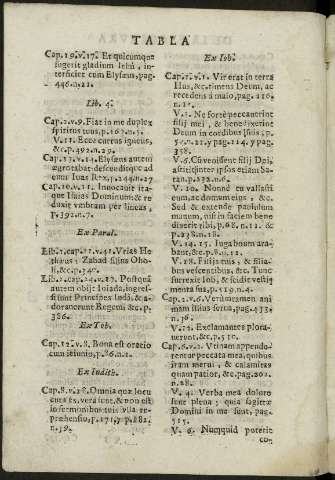 TABLA
Cap.19.v.17. Et quicumque
fugerit gladium Iehù, in-
terficiet eum Elyseus, pag.
446.n.21.
Lib. 4.
Cap.2.v.9. Fiat in me duplex
spiritus tuus, p.167.n.3.
V.11. Ecce currus igneus,
&c.p.492.n.29.
Cap.13.v.14. Elyseus autem
ægrotabat: descendit que ad
eum Ioas Rex, p.244.n.27
Cap.20.v.11. Inuocauit ita-
que Isaias Dominum & re
duxit vmbram per lineas,
p.392.n.7.
Ex Paral.
Lib.1.cap.11.v.41. Vrias He
theus; Zabad filius Oho-
li, &c.p.340.
Lib.2.cap.24.v.17. Postquã
autem obijt Ioiada, ingres-
si sunt Principes Iudà, & a-
dorauerunt Regem &c. p.
386.
Ex Tob.
Cap.12.v.8. Bona est oratio
cum ieiunio, p.86.n.1.
Ex Iudith.
Cap.8.v.28. Omnia quæ locu
ta es, vera sunt, & non est
in sermonibus tuis vlla re-
præhensio, p.171.y p.282.
n.39.
Ex Iob.
Cap.1.v.1. Vir erat in terra
Hus, &c. timens Deum, ac
recedens à malo, pag.210.
V.5. Ne fortè peccauerint
filij mei, & benedixerint
Deum in cordibus suis; p.
V.6. Cũ venissent filij Dei,
& assisterent
V.10. Nonne tu vallasti
eum, ac domum eius, &c.
Sed & extende paululum
manum, nisi in faciem bene
dixerit tibi, p.68.n.12. &
p.238.n.18.
V.14.15. Iuga boum arabant,
&c.p.8.n.12.
V.18. Filijs tuis, & filiabus
vescentibus, &c. Tunc
surrexit Iob, & scidit vesti
menta sua, p.519.n.4.
Cap.2.v.6. Verũtamen ani
mam illius serua, pag.433.
n.36.
V.12. Exclamantes plora-
uerunt, &c.p.510.
Cap.6.v.2. Vtinam appende-
rentur peccata mea, quibus
iram merui, & calamitas
quam patior, &c.
n.18.
V.4. Verba mea dolore
sunt plena; quia sagittæ
Domini in me sunt, pag.
515.
V.6. Numquid poterit
co-